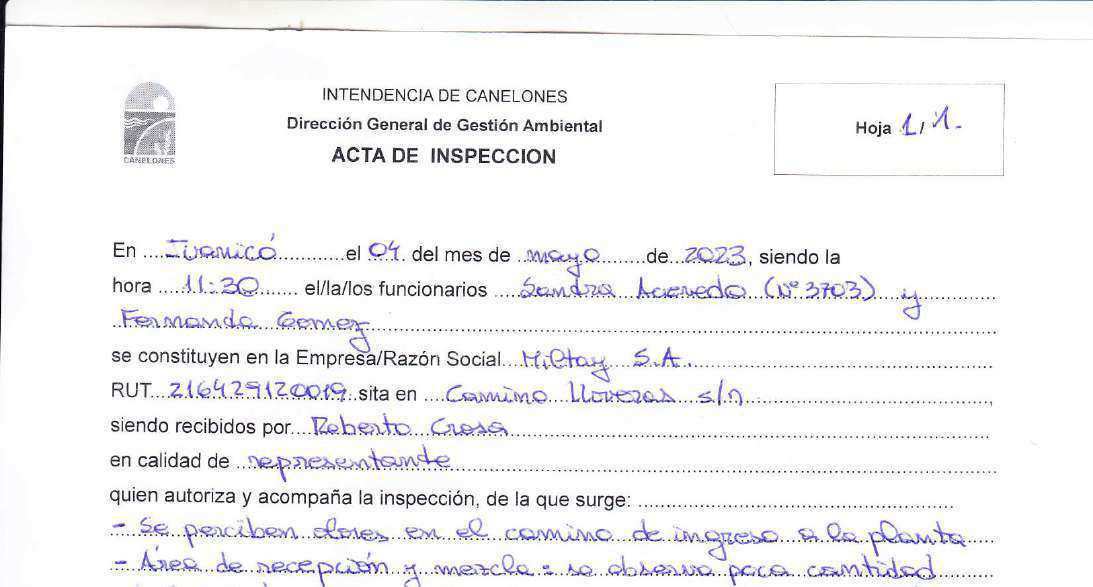 CANELONES
INTENDENCIA DE CANELONES
Dirección General de Gestión Ambiental
ACTA DE INSPECCION
Hoja 1/1.
En Juanicó el 04 del mes de mayo de 2023, siendo la
hora 11:30 el/la/los funcionarios Sandra Acevedo (Nº 3703) y
Fernanda Gomez
se constituyen en la Empresa/Razón Social Miltay S.A.
RUT 216429120019 sita en Camino Lloveras s/n
siendo recibidos por Roberto Crosa
en calidad de representante
quien autoriza y acompaña la inspección, de la que surge:
- Se perciben olores en el camino de ingreso a la planta
- Área de recepción y mezcla: se observa poca cantidad